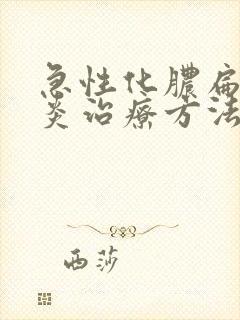 急性化脓扁
炎治疗方法
西莎